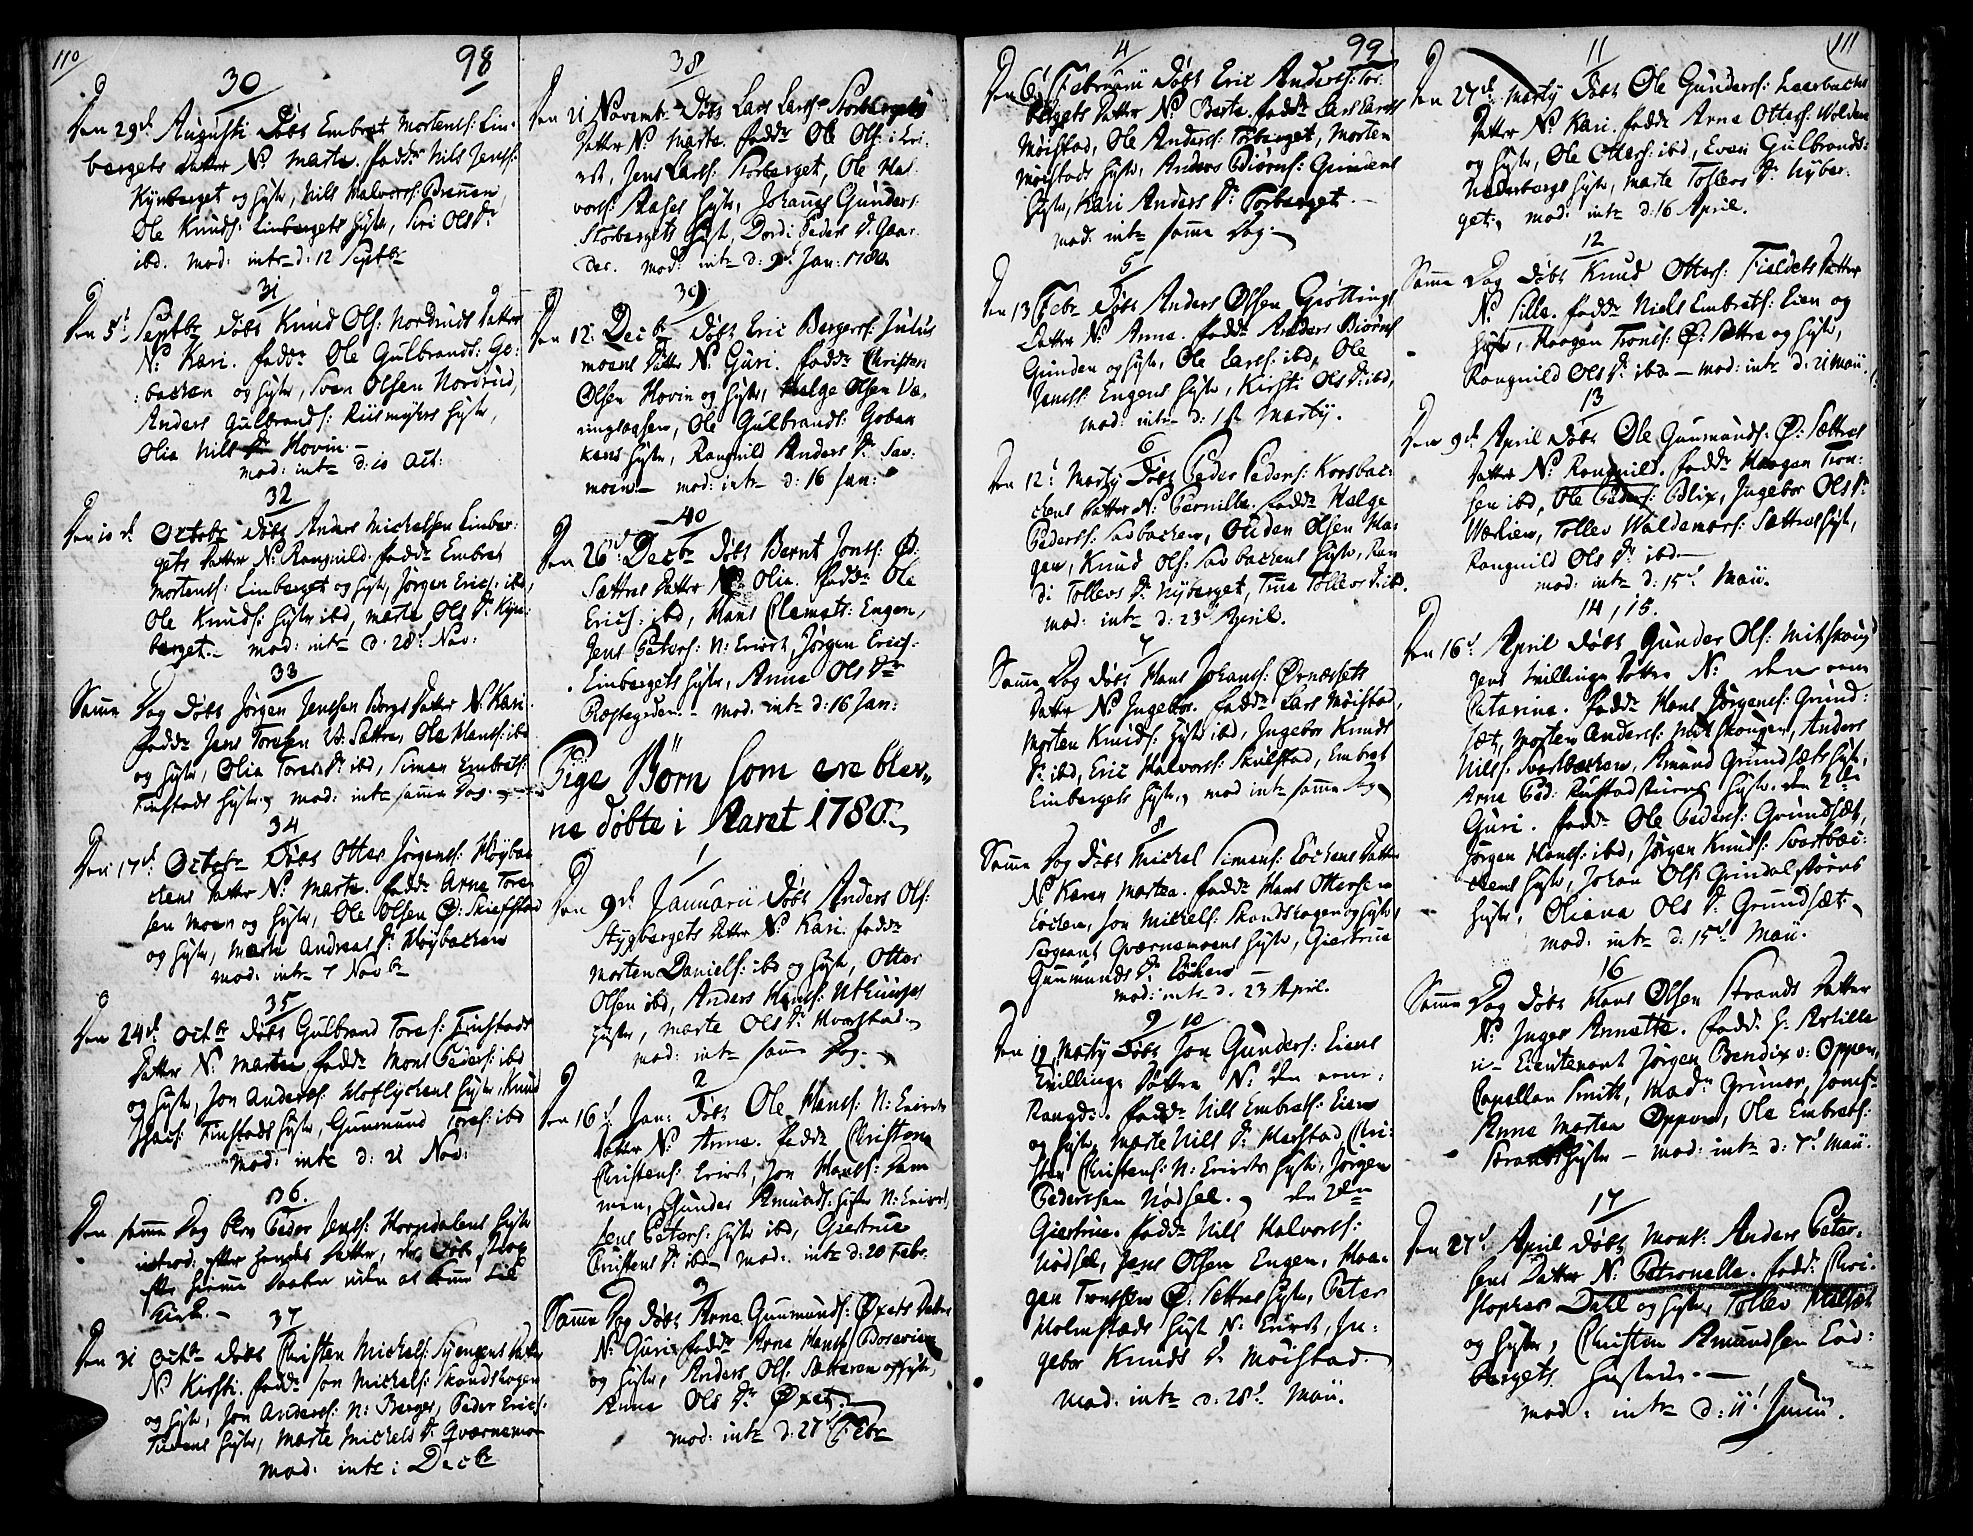 110
98
30
Den 29d. Augusti Døbt Embret Mortens: Lin-
bergets Datter N: Marte. Faddr Nils Jens:
Kynberget og Hust, Nils Halvors:
Ole Knuds: Linbergets Hust, Siri Ols Dr
ibd. mod: intr d: 12 Septbr
31
Den 5t Septbr Døbt Knud Ols: Nordruds Datter
N: Kari. Faddr Ole Gulbrands: Go-
backen og Hust, Sven Olsen Nordrud,
Anders Gulbrands: Hust,
Olia Nils Dr Hovin.
mod: intr d: 10 Oct:
32
Den 10d Octobr Døbt Anders Mickelsen Linber-
gets Datter N: Rangnild. Faddr Embret
Mortens: Linberget og Hust, Jørgen Erics: ibd,
Ole Knuds: Hust ibd, Marte Ols Dr Kyn-
berget. mod: intr d. 28d Nov:
33
Samme Dag Døbt Jørgen Jensen Bergs Datter N: Kari.
Faddr Jens Toresen V: Sattre, Ole Hans: ibd
og Hust, Olia Tores Dr ibd, Simen Embrets:
Finstads Hust, mod: intr samme Dag.
34
Den 17d Octobr Døbt Otter Jørgens: Høybac-
kens Datter N: Marte. Faddr Arne Tore-
sen Moen og Hust, Ole Olsen Ø: Skiefstad
og Hust, Marte Andreas Dr Høybacken
mod: intr 7 Novbr
35
Den 24d Octbr Døbt Gulbrand Tores: Finstads
Datter N: Marte Faddr Mons Peders: ibd
og Hust, Jon Anders: Hust, Knud
Finstads Hust, Gunmund Tores: ibd
mod: intr d: 21 Nov:
36.
Den samme Dag blev Peder Jens: Horndalens Hust
introd: efter hendes Datter, der Døbt

Kirke.
37
Den 31 Octbr Døbt Christen Mickels: Datter
N: Kirsti. Faddr Jon Mickels: Skandshagen
og Hust, Jon Anders: N: Berger, Peder Erics:
Hust, Marte Mickels Dr Qværnemoe
mod: intr i Decbr
38
Den 21 Novembr Døbt Lars Lars: Storbergets
Datter N: Marte. Faddr Ole Ols: i Evi-
rdt, Jens Lars: Storberget, Ole Hal-
vors: Hust, Johanes Gunders:
Storbergets Hust, Dordi Peders Dr Gaar-
der. mod: intr d: 9d Jan: 1780.
39
Den 12: Decbr Døbt Eric Bergers: Julus
moens Datter N: Guri. Faddr Christen
Olsen Hovin og Hust, Halge Olsen Væ-
ningsaasen, Ole Gulbrands: Gobac
kens Hust, Rangnild Anders Dr Sav-
moen. mod: intr d: 16 Jan:
40
Den 26d Decbr Døbt Bernt Jons: Ø:
Sattres Datter N: Olia. Faddr Ole
Erics: ibd, Hans Clemets: Engen,
Jens Peters: N: Evirdt, Jørgen Erics:
Linbergets Hust, Anne Ols Dr
Præstegrden. mod: intr d: 16 Jan:
Pige Börn som ere blev-
ne döbte i Aaret 1780.
1
Den 9d Januarii Døbt Anders Ols:
Stygbergets Datter N: Kari. Faddr
Morten Daniels: ibd og Hust, Otter
Olsen ibd, Anders Hans:
Hust, Marte Ols Dr Kvarstad.
mod: intr samme Dag.
2
Den 16d Jan: Døbt Ole Hans: N: Evirdts
Datter N: Anne. Faddr Christen
Christens: Evirdt, Jon Hans: Søm
men, Gunder Amunds: Hust N: Evirdt,
Jens Peters: Hust ibd, Giertrue
Christens Dr ibd. mod: intr d: 20 Febr.
3
Samme Dag Døbt Arne Gunmunds: Øxets Datter
N: Guri. Faddr Arne Hans:
og Hust, Anders Ols: Sætteren og Hust,
Anne Ols Dr Øxet.
mod: intr d: 27d Febr
99
4
Den 6t Februarii Døbt Eric Anders: Tor-
bergets Datter N: Berte. Faddr Lars Lars:
Møistad, Ole Anders: Torberget, Morten
Moistads Hust, Anders Biørns: Grindens
Hust, Kari Anders Dr Torberget.
mod: intr samme Dag.
5
Den 13 Febr Døbt Anders Olsen Grøttings
Datter N: Anne. Faddr Anders Biørns:
Grinden og Hust, Ole Lars: ibd, Ole
Jens: Engens Hust, Kirsti Ols Dr ibd,
mod: intr d: 1st Martij.
6
Den 12t Martij Døbt Peder Peders: Korsbac-
kens Datter N: Pernille. Faddr Halge
Peders: Savbacken, Ouden Olsen Ha-
gen, Knud Ols: Savbackens Hust, Ran
di Tollevs Dr Nyberget, Trine Tollevs Dr ibd.
mod: intr d: 23d April.
7
Samme Dag Døbt Hans Johans: Ørnæssets
Datter N: Ingebor. Faddr Lars Møistad,
Morten Knuds: Hust ibd, Ingebor Knuds
Dr ibd, Eric Halvors: Skulstad, Embret
Linbergets Hust, mod intr samme Dag
8
Samme Dag Døbt Mickel Simens: Løckens Datter
N: Karen Martea. Faddr Hans Otters:
Løcken, Jon Mickels: Skandshagen og Hust,
Sergeant Qværnemoens Hust, Giertrue
Gunmunds Dr Løcken
mod: intr d. 23 April.
9 10
Den 19 Martij Døbt Jon Gunders: Eiens
Tvillinge Døttre N: Den eene
Rangdi. Faddr Nils Embrets: Eien
og Hust, Marte Nils Dr Harstad, Chri-
sten Christens: N: Evirdts Hust, Jørgen
Pedersen Nødset. Den 2den
Giertrue. Faddr Nils Halvors:
Nødset, Jens Olsen Engen, Haa-
gen Tronsen Ø: Sattres Hust, Peter
Holmstads Hust N: Evirdt, In-
gebor Knuds Dr Moistad.
mod: intr d. 28d Maii.
111
11
Den 27d Martij Døbt Ole Gunders: Leerbackens
Datter N: Kari. Faddr Arne Otters: Wolden
og Hust, Ole Otters: ibd, Even Gulbrands:
Nederbergs Hust, Marte Tollevs Dr Nyber-
get, mod: intr d: 16 April.
12
Samme Dag Døbt Knud Otters: Fieldets Datter
N: Sille. Faddr Niels Embrets: Eien og
Hust, Haagen Trons: Ø: Sattre og Hust,
Rangnild Ols Dr ibd - mod: intr d. 21 Maii.
13
Den 9d April Døbt Ole Gunmunds: Ø: Sættres
Datter N: Rangnild. Faddr Haagen Tron-
sen ibd, Ole Peders: Blix, Ingebor Ols Dr
Wærien, Tollev Woldemars: Sattres Hust,
Rangnild Ols Dr ibd
mod: intr d: 15d Maii.
14, 15.
Den 16d April Døbt Gunder Ols: Mitskoug
ens tvillinge Døttre N: Den eene
Catarina. Faddr Hans Jørgens: Grund-
sæt, Morten Anders: Mitskougen, Anders
Nils: Svartbacken, Amund Grundsæts Hust,
Arne Ped: Hust. Den 2den
Guri. Faddr Ole Peders: Grundsæt,
Jørgen Hans: ibd, Jørgen Knuds: Svartbac-
kens Hust, Johan Ols: Grindalstøens
Hust, Oliana Ols Dr Grundsæt.
mod: intr d: 15d Maii.
16
Samme Dag Døbt Hans Olsen Strands Datter
N: Inger Annette. Faddr H: Artille
ri-Lieutenant Jørgen Bendix v: Oppen,
Capellan Smith, Madm Grüner, Jomfr
Anne Marten Oppen, Ole Embrets:
Strands Hust - mod: intr d: 7d Maii.
17
Den 27d April Døbt Mons: Anders Peter-
sens Datter N: Petronelle. Faddr Chri-
stopher Dahl og Hust, Tollev
og Hust, Christen Amundsen Lød-
bergets Hustrue.
mod: intr d: 11t Junii.